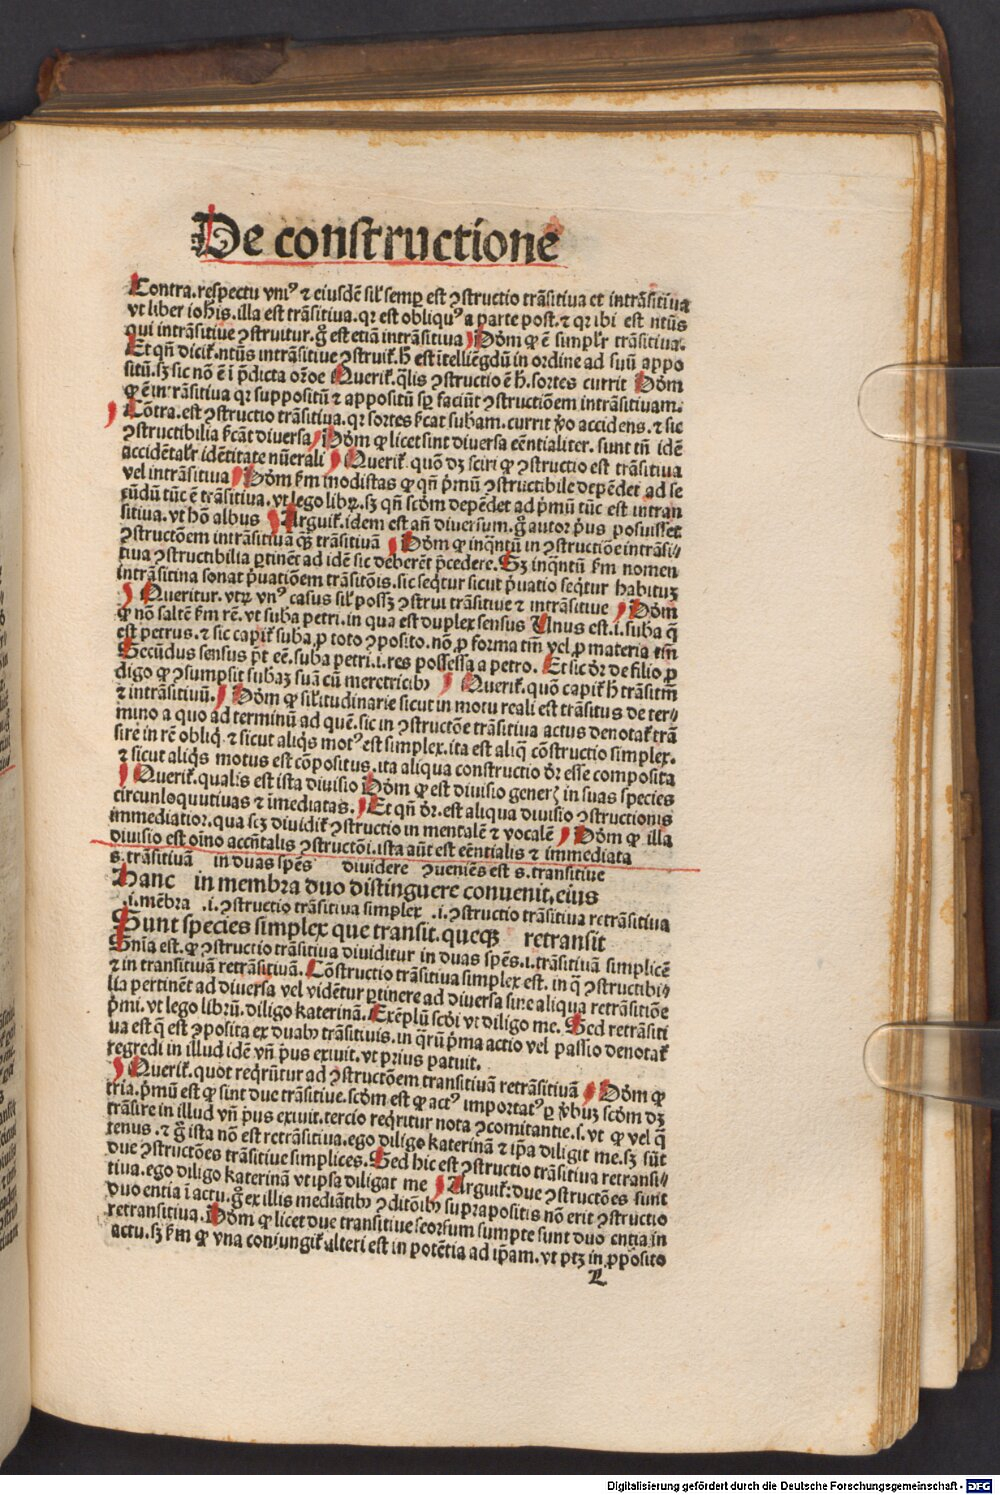 De constructione
Contra.respectu vniꝰ ⁊ eiusdē silʼ semꝑ est ꝯstructio trāsitiua et intrāsitiua
vt liber iohis.illa est trāsitiua.qr est obliquꝰ a parte post.⁊ qr ibi est ntūs
qui intrāsitiue ꝯstruitur.g̊ est etiā intrāsitiua Dōm ꝙ ē simplr trāsitiua.
Et qn̄ dicik̄.ntūs intrāsitiue ꝯstruik̄.h̄ est ītelliēgdū in ordine ad suū appo
sitū.sꝫ sic nō ē ī p̄dicta oroē Querik̄.q̄lis ꝯstructio ē h̄.sortes currit Dōm
ꝙ ē intrāsitiua qr suppositū ⁊ appositū sꝑ faciūt ꝯstructiōem intrāsitiuam.
Cōtra.est ꝯstructio trāsitiua.qr sortes ſcat subam.currit ꝟo accidens.⁊ sic
ꝯstructibilia ſcāt diuersa Dōm ꝙ licet sint diuersa eēntialiter.sunt tn̄ idē
accidētalr idētitate nūerali Querik̄ quō dꝫ sciri ꝙ ꝯstructio est trāsitiua
vel intrāsitiua Dōm ſm modistas ꝙ qn̄ pꝛimū ꝯstructibile depēdet ad se
cūdū tūc ē trāsitiua.vt lego libꝝ.sꝫ qn̄ scdm depēdet ad pꝛmū tūc est intran
sitiua.vt hō albus Arguik̄.idem est an̄ diuersum.g̊ autor pꝛus posuisset
ꝯstructōem intrāsitiuā qꝫ trāsitiuā Dōm ꝙ inqn̄tū in ꝯstructiōe intrāsi//
tiua ꝯstructibilia ꝑtinēt ad idē sic deberēt p̄cedere.Sꝫ inqn̄tū ſm nomen
intrāsitiua sonat pꝛuatiōem trāsitōis.sic seqt̄ur sicut pꝛuatio seqt̄ur habituꝫ
Queritur.vtꝝ vnꝰ casus silʼ possꝫ ꝯstrui trāsitiue ⁊ intrāsitiue Dōm
ꝙ nō saltē ſm rē.vt suba petri.in qua est duplex sensus Unus est.i.suba q̄
est petrus.⁊ sic capik̄ suba ꝓ toto ꝯposito.nō ꝓ forma tm̄ vel ꝓ materia tm̄
Secūdus sensus pt̄ eē.suba petri.i.res possessa a petro. Et sic dr̄ de filio ꝓ
digo ꝙ ꝯsumpsit subaꝫ suā cū meretricibꝫ Querik̄.quō capik̄ h̄ trāsitm̄
⁊ intrāsitiuū. Dōm ꝙ silʼitudinarie sicut in motu reali est trāsitus de ter//
mino a quo ad terminū ad quē.sic in ꝯstructōe trāsitiua actus denotak̄ trā
sire in rē obliq̄.⁊ sicut aliqs̄ motꝰ est simplex.ita est aliq̄ cōstructio simplex.
⁊ sicut aliqs̄ motus est cōpositus.ita aliqua constructio dr̄ esse composita
Querik̄.qualis est ista diuisio Dōm ꝙ est diuisio generꝭ in suas species
circunloquutiuas ⁊ īmediatas. Et qn̄ dr̄.est aliqua diuisio ꝯstructionis
immediatior.qua scꝫ diuidik̄ ꝯstructio in mentalē ⁊ vocalē Dōm ꝙ illa
diuisio est oīno accn̄talis ꝯstructōi.ista aūt est eēntialis ⁊ immediata
s.trāsitiuā in duas spēs diuidere ꝯueniēs est s.transitiue
Hanc in membra duo distinguere conuenit.eius
.i.mēbra .i.ꝯstructio trāsitiua simplex .i.ꝯstructio trāsitiua retrāsitiua
Sunt species simplex que transit.queqꝫ retransit
Snīa est.ꝙ ꝯstructio trāsitiua diuiditur in duas spēs.i.trāsitiuā simplicē
⁊ in transitiuā retrāsitiuā. Cōstructio trāsitiua simplex est.in q̄ ꝯstructibi//
lia pertinēt ad diuersa vel vidētur ꝑtinere ad diuersa sine aliqua retrāsitiōe
pꝛmi.vt lego librū.diligo katerinā. Exēplū scdi vt diligo me. Sed retrāsiti
ua est q̄ est ꝯposita ex duabꝫ trāsitiuis.in qr̄ū pꝛma actio vel passio denotak̄
regredi in illud idē vn̄ pꝛus exiuit.vt prius patuit.
Querik̄.quot reqr̄ūtur ad ꝯstructōem transitiuā retrāsitiuā Dōm ꝙ
tria.pꝛmū est ꝙ sint due trāsitiue.scdm est ꝙ actꝰ importatꝰ ꝑ ꝟbuꝫ scdm dꝫ
trāsire in illud vn̄ pꝛus exiuit.tercio reqr̄itur nota ꝯcomitantie.s.vt ꝙ vel q̄
tenus.⁊ g̊ ista nō est retrāsitiua.ego diligo katerinā ⁊ ip̄a diligit me.sꝫ sūt
due ꝯstructōes trāsitiue simplices. Sed hic est ꝯstructio trāsitiua retransi//
tiua.ego diligo katerinā vt ipsa diligat me Arguik̄:due ꝯstructōes sunt
duo entia ī actu.g̊ ex illis mediātibꝫ ꝯditōibꝫ suprapositis nō erit ꝯstructio
retransitiua. Dōm ꝙ licet due transitiue seorsum sumpte sunt duo entia in
actu.sꝫ ſm ꝙ vna coniungik̄ alteri est in potētia ad ip̄am.vt ptꝫ in ꝓposito
L
Digitalisierung gefördert durch die Deutsche Forschungsgemeinschaft - DFG